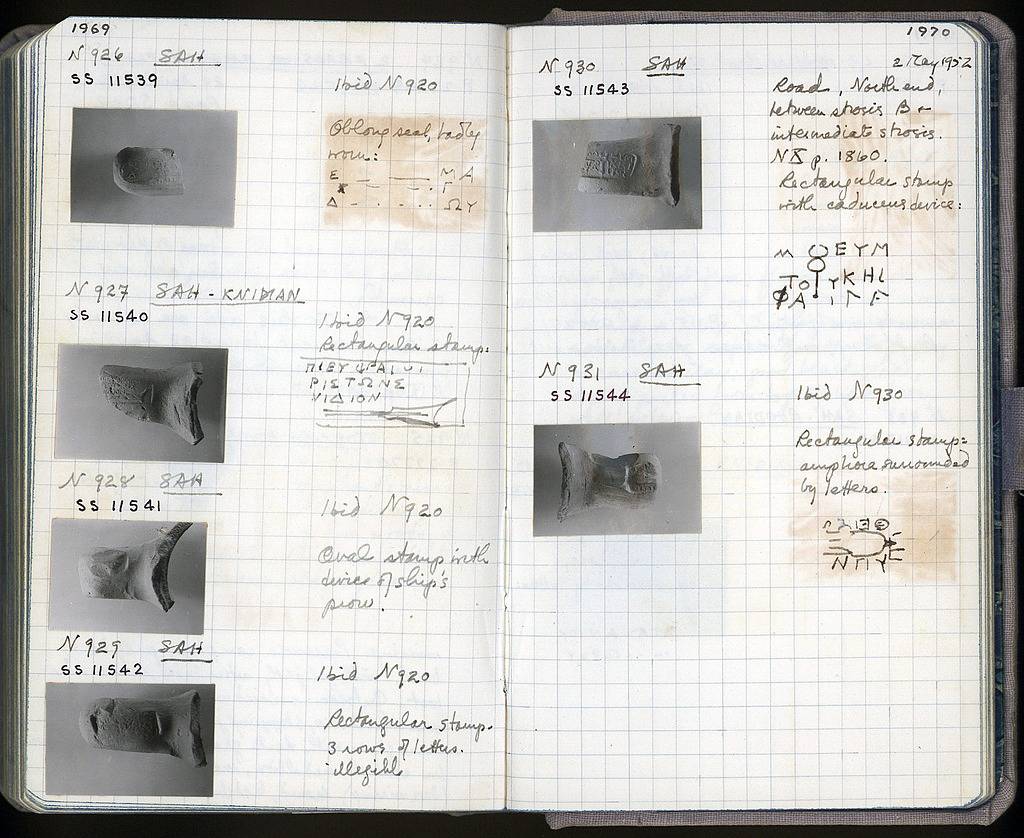 1969
N 926 SAH
SS 11539
Ibid N 920
Oblong seal, badly
worn:
E _ _ M A
Γ
Δ - . . . . Ω Υ
N 927 SAH - KNIDIAN
SS 11540
Ibid N 920
Rectangular stamp:
ΡΙΣΤΩΝΕ
ΝΙΔΙΟΝ
N 928 SAH
SS 11541
Ibid N 920
Oval stamp with
device of ship's
prow.
N 929 SAH
SS 11542
Ibid N 920
Rectangular stamp.
3 rows of letters.
illegible
1970
2 May 1952
N 930 SAH
SS 11543
Road, North end,
between strosis B &
intermediate strosis.
NX p. 1860.
Rectangular stamp
with caduceus device:
Μ ΕΥΜ
ΤΟ ΥΚΗΙ
ΦΑ Ι Γ Γ
N 931 SAH
SS 11544
Ibid N 930
Rectangular stamp:
amphora surrounded
by letters.
ΝΠΥ